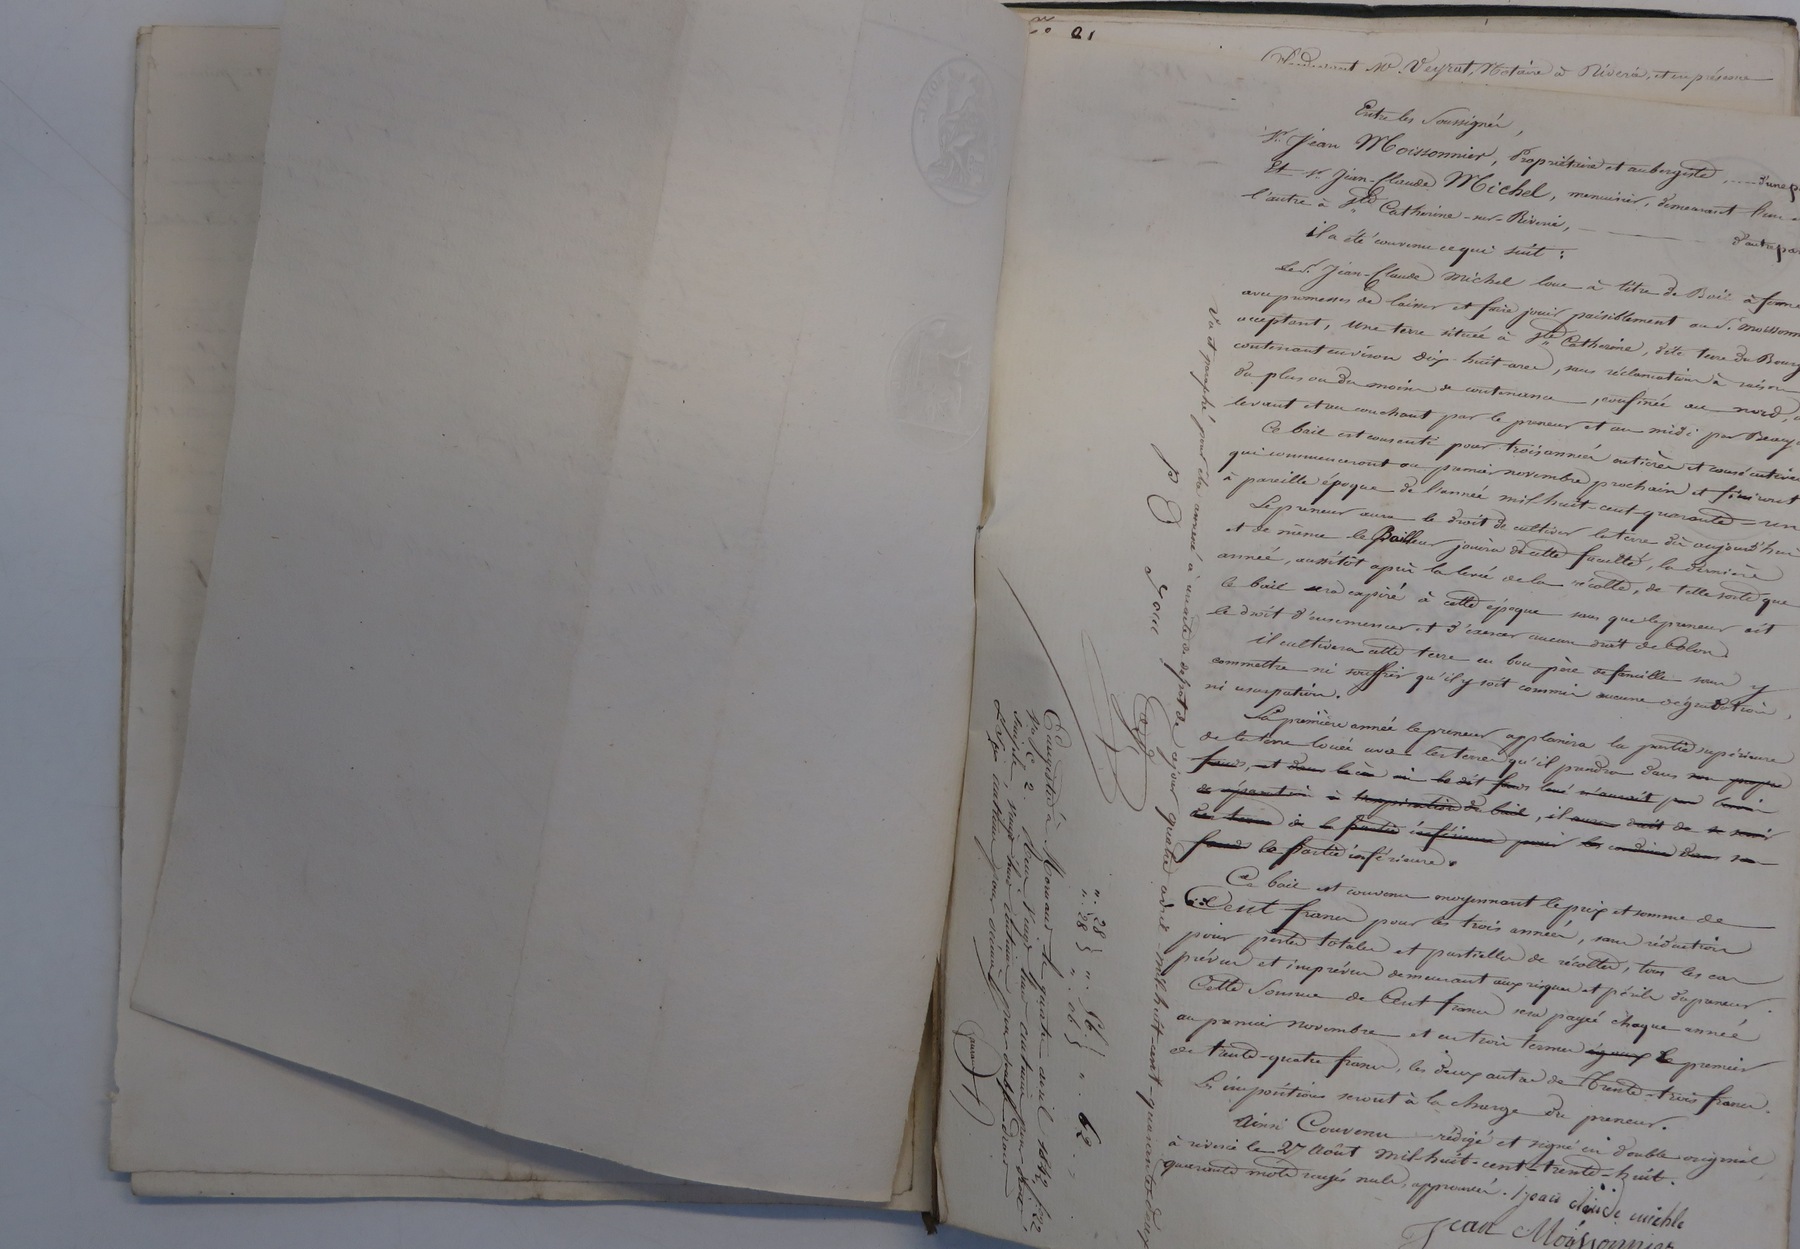 N° 21
Pardevant Me. Veyrat, Notaire à Riverie, et en présence
Entre les Soussignés,
Sr. Jean Moissonnier, Propriétaire et aubergiste, d'une p
Et Sr. Jean-Claude Michel, menuisier, demeurant l'un
l'autre à Ste Catherine-sur-Riverie, d'autre par
il a été convenu ce qui suit :
Le Sr. Jean-Claude Michel loue à titre de Bail à ferme
avec promesses de laisser et faire jouir paisiblement au Sr. Moissonn
acceptant, une terre située à Ste Catherine, dite terre du Bourg
contenant environ dix-huit ares, sans réclamation à raison
du plus ou du moins de contenance, confinée au nord, a
levant et au couchant par le preneur et au midi par Beauj
Ce bail est consenti pour trois années entières et consécutives
qui commenceront au premier novembre prochain et finiront
à pareille époque de l'année mil huit-cent quarante-un
Le preneur aura le droit de cultiver la terre dès aujourd'hui
et de même le Bailleur jouira de cette faculté, la dernière
année, aussitôt après la levée de la récolte, de telle sorte que
le bail sera expiré à cette époque sans que le preneur ait
le droit d'ensemencer et d'exercer aucun droit de Colon.
il cultivera cette terre en bon père de famille sans y
commettre ni souffrir qu'il y soit commis aucune dégradation,
ni usurpation.
La première année le preneur applanira la partie supérieure
de la terre louée avec les terres qu'il prendra dans son propre
fonds, et dans le cas où le dit fonds loué n'aurait pas besoin
de réparation à l'expiration du bail, il aura droit de se servir
des terres de la partie inférieure pour les conduire dans son
fonds la partie inférieure.
Ce bail est convenu moyennant le prix et somme de
Cent francs pour les trois années, sans réduction
pour pertes totales et partielles de récoltes, tous les cas
prévus et imprévus demeurant aux risques et périls du preneur.
Cette somme de Cent francs sera payée chaque année
au premier novembre et en trois termes égaux le premier
de trente-quatre francs, les deux autres de Trente-trois francs.
Les impositions seront à la charge du preneur.
Ainsi Convenu rédigé et signé en double original
à riverie le 27 Août mil-huit-cent-trente-huit.
quarante mots rayés nuls, approuvés. jean claude michle
Jean Moissonnier
Vu et paraphé pour être annexé à un acte de dépôt de ce jour quatre avril mil-huit-cent-quarante-deux
Enregistré à Mornant le quatre avril 1842, fo. 22
28
28
56
06
62